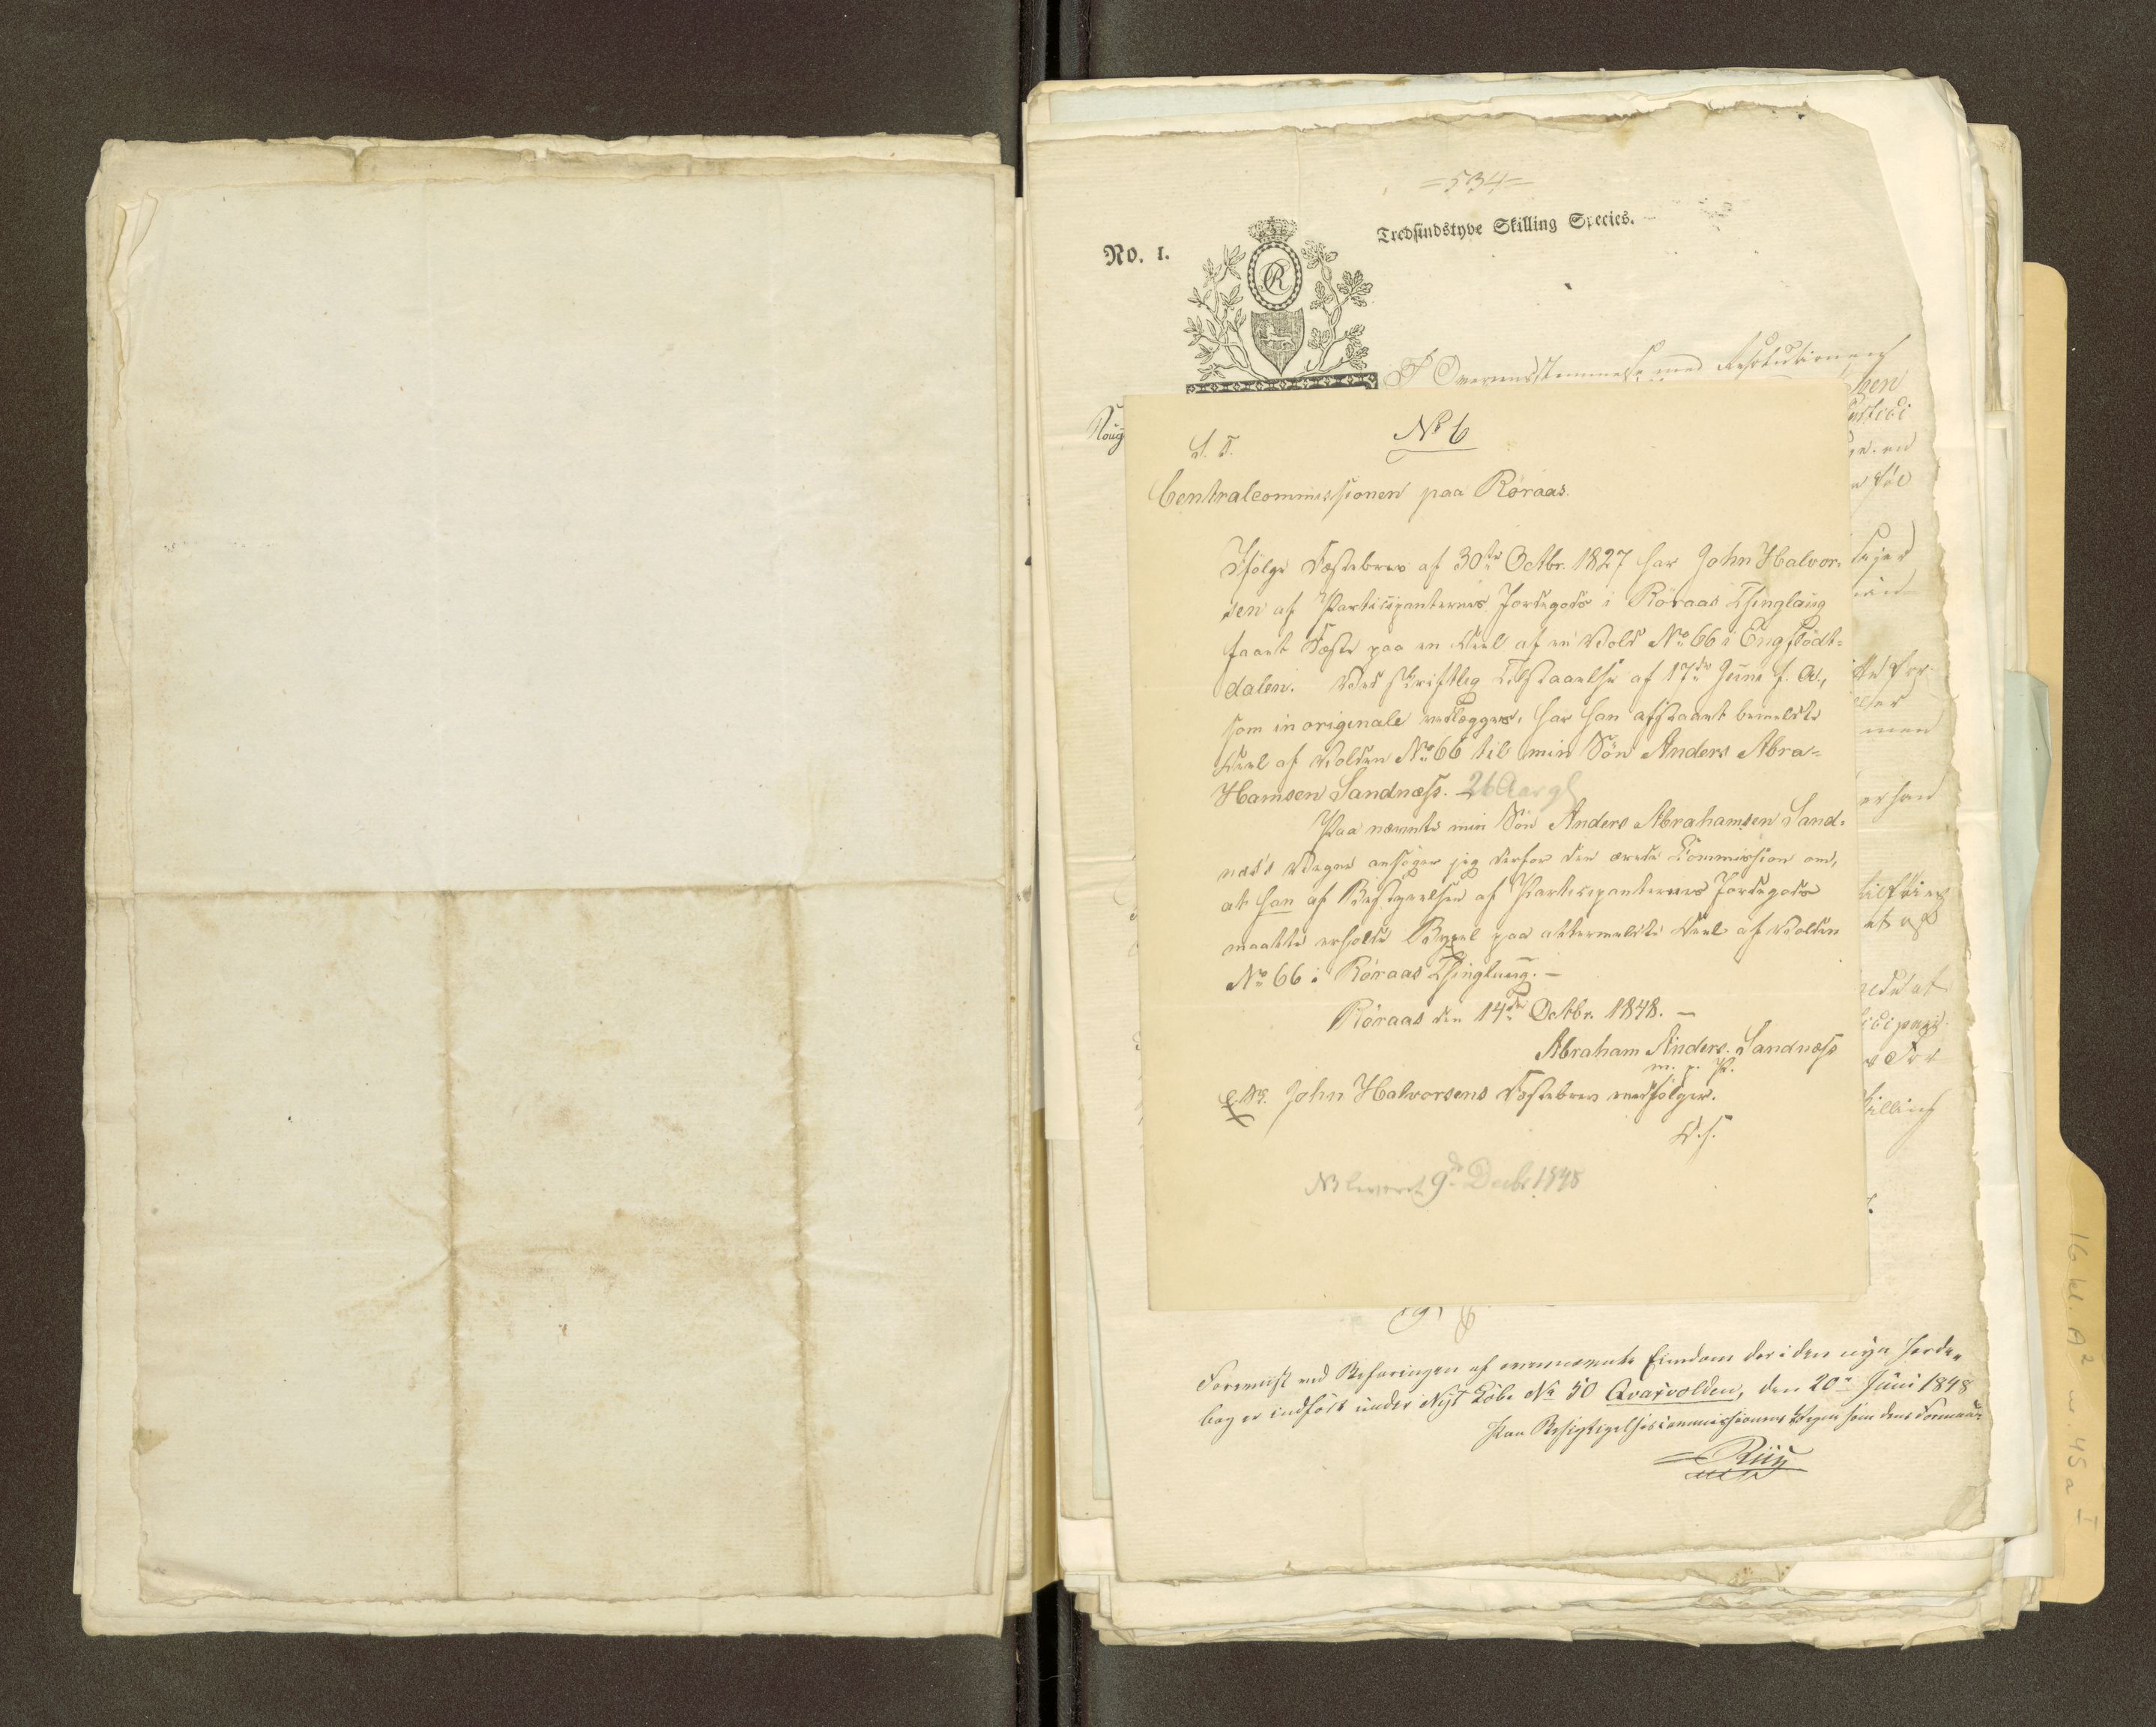 =534=
No. 1.
Tredsindstyve Skilling Species.
R
I Overeensstemmelse med Resolutionen
No 6
S. T.
Centralcommissionen paa Röraas.
Ifölge Fæstebrev af 30te Octbr. 1827 har John Halvor-
sen af Participanternes Jordegods i Röraas Thinglaug
faaet Fæste paa en Deel af en Vold No 66 i Engflodt-
dalen. Ved skriftlig Tilstaaelse af 17de Juni f. A.,
som in originale vedlægges, har han afstaaet bemeldte
Deel af Volden No 66 til min Sön Anders Abra-
Hamsen Sandnæss. 26 Aar gl
Paa nævnte min Sön Anders Abrahamsen Sand-
næs's Vegne ansöger jeg derfor den ærede Commission om,
at han af Bestyrelsen af Participanternes Jordegods
maatte erholde Byxel paa ottermeldte Deel af Volden
No 66 i Röraas Thinglaug. —
Röraas den 14de Octbr. 1848. —
Abraham Anders. Sandnæss
m. p. P.
NB. John Halvorsens Fæstebrev medfölger.
D. S.
NB leveret 9de Decbr 1848
Foreviist ved Befaringen af ovennævnte Eiendom der i den nye Jorde-
bog er indfört under Nyt Löbe No 50 Qvasvolden, den 20de Juni 1848
Paa Besigtigelsescommissionens Vegne som dens Formand
16 kl. A2 w 45 a I